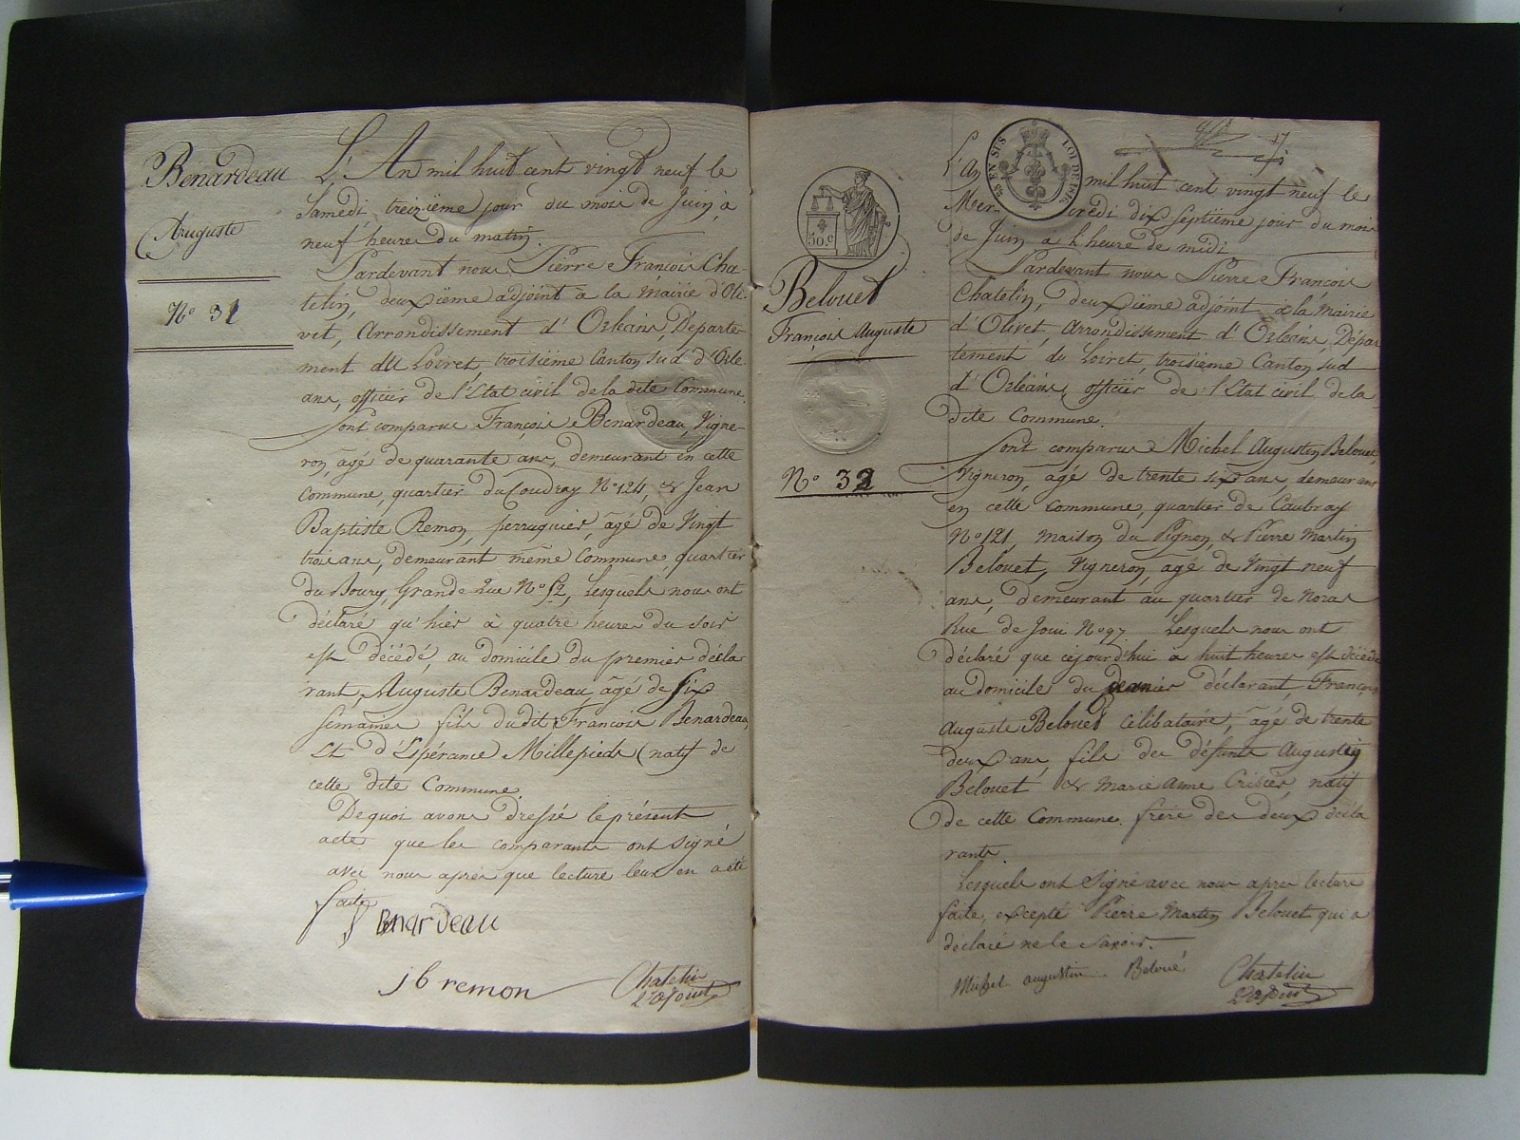 Benardeau
Auguste
N° 31
L'An mil huit cent vingt neuf le
Samedi, treizième jour du mois de Juin, à
neuf heures du matin.
Pardevant nous Pierre François Cha-
telin, deuxième adjoint à la Mairie d'Oli-
vet, Arrondissement d'Orléans, Départe-
ment du Loiret, troisième Canton sud d'Orlé-
ans, officier de l'Etat civil de la dite Commune.
Sont comparus François Benardeau, Vigne-
ron, âgé de quarante ans, demeurant en cette
Commune, quartier du Coudray N° 124, & Jean
Baptiste Remon, perruquier, âgé de Vingt
trois ans, demeurant même Commune, quartier
du Bourg, Grande Rue N° 52, Lesquels nous ont
déclaré qu'hier à quatre heures du soir
est décédé, au domicile du premier décla-
rant, Auguste Benardeau, âgé de six
semaines fils dudit François Benardeau
Et d'Espérance Millepieds (natif de
cette dite Commune
De quoi avons dressé le présent
acte que les comparants ont signé
avec nous après que lecture leur en a été
faite
f Benardeau
jb remon
Chatelin
2e adjoint
17
50.c
LOI DU
Belouet
François Auguste
N° 32
L'An mil huit cent vingt neuf le
Mercredi dix septième jour du mois
de Juin à l'heure de midi
Pardevant nous Pierre François
Chatelin, deuxième adjoint à la Mairie
d'Olivet, Arrondissement d'Orléans, Dépar-
tement du Loiret, troisième Canton sud
d'Orléans, officier de l'Etat civil de la
dite Commune.
Sont comparus Michel Augustin Belouet,
Vigneron, âgé de trente six ans, demeurant
en cette Commune, quartier de Caubray
N° 121, maison du Pignon, & Pierre Martin
Belouet, Vigneron, âgé de Vingt neuf
ans, demeurant au quartier de Noras
Rue de Joui N° 97 Lesquels nous ont
déclaré que cejourd'hui à huit heures est décédé
au domicile du dernier déclarant François
Auguste Belouet célibataire, âgé de trente
deux ans, fils de défunts Augustin
Belouet & Marie Anne Cribier, natif
de cette Commune, frère des deux décla-
rants.
Lesquels ont Signé avec nous après lecture
faite, excepté Pierre Martin Belouet qui a
déclaré ne le Savoir.
Michel augustin Beloué
Chatelin
2e adjoint